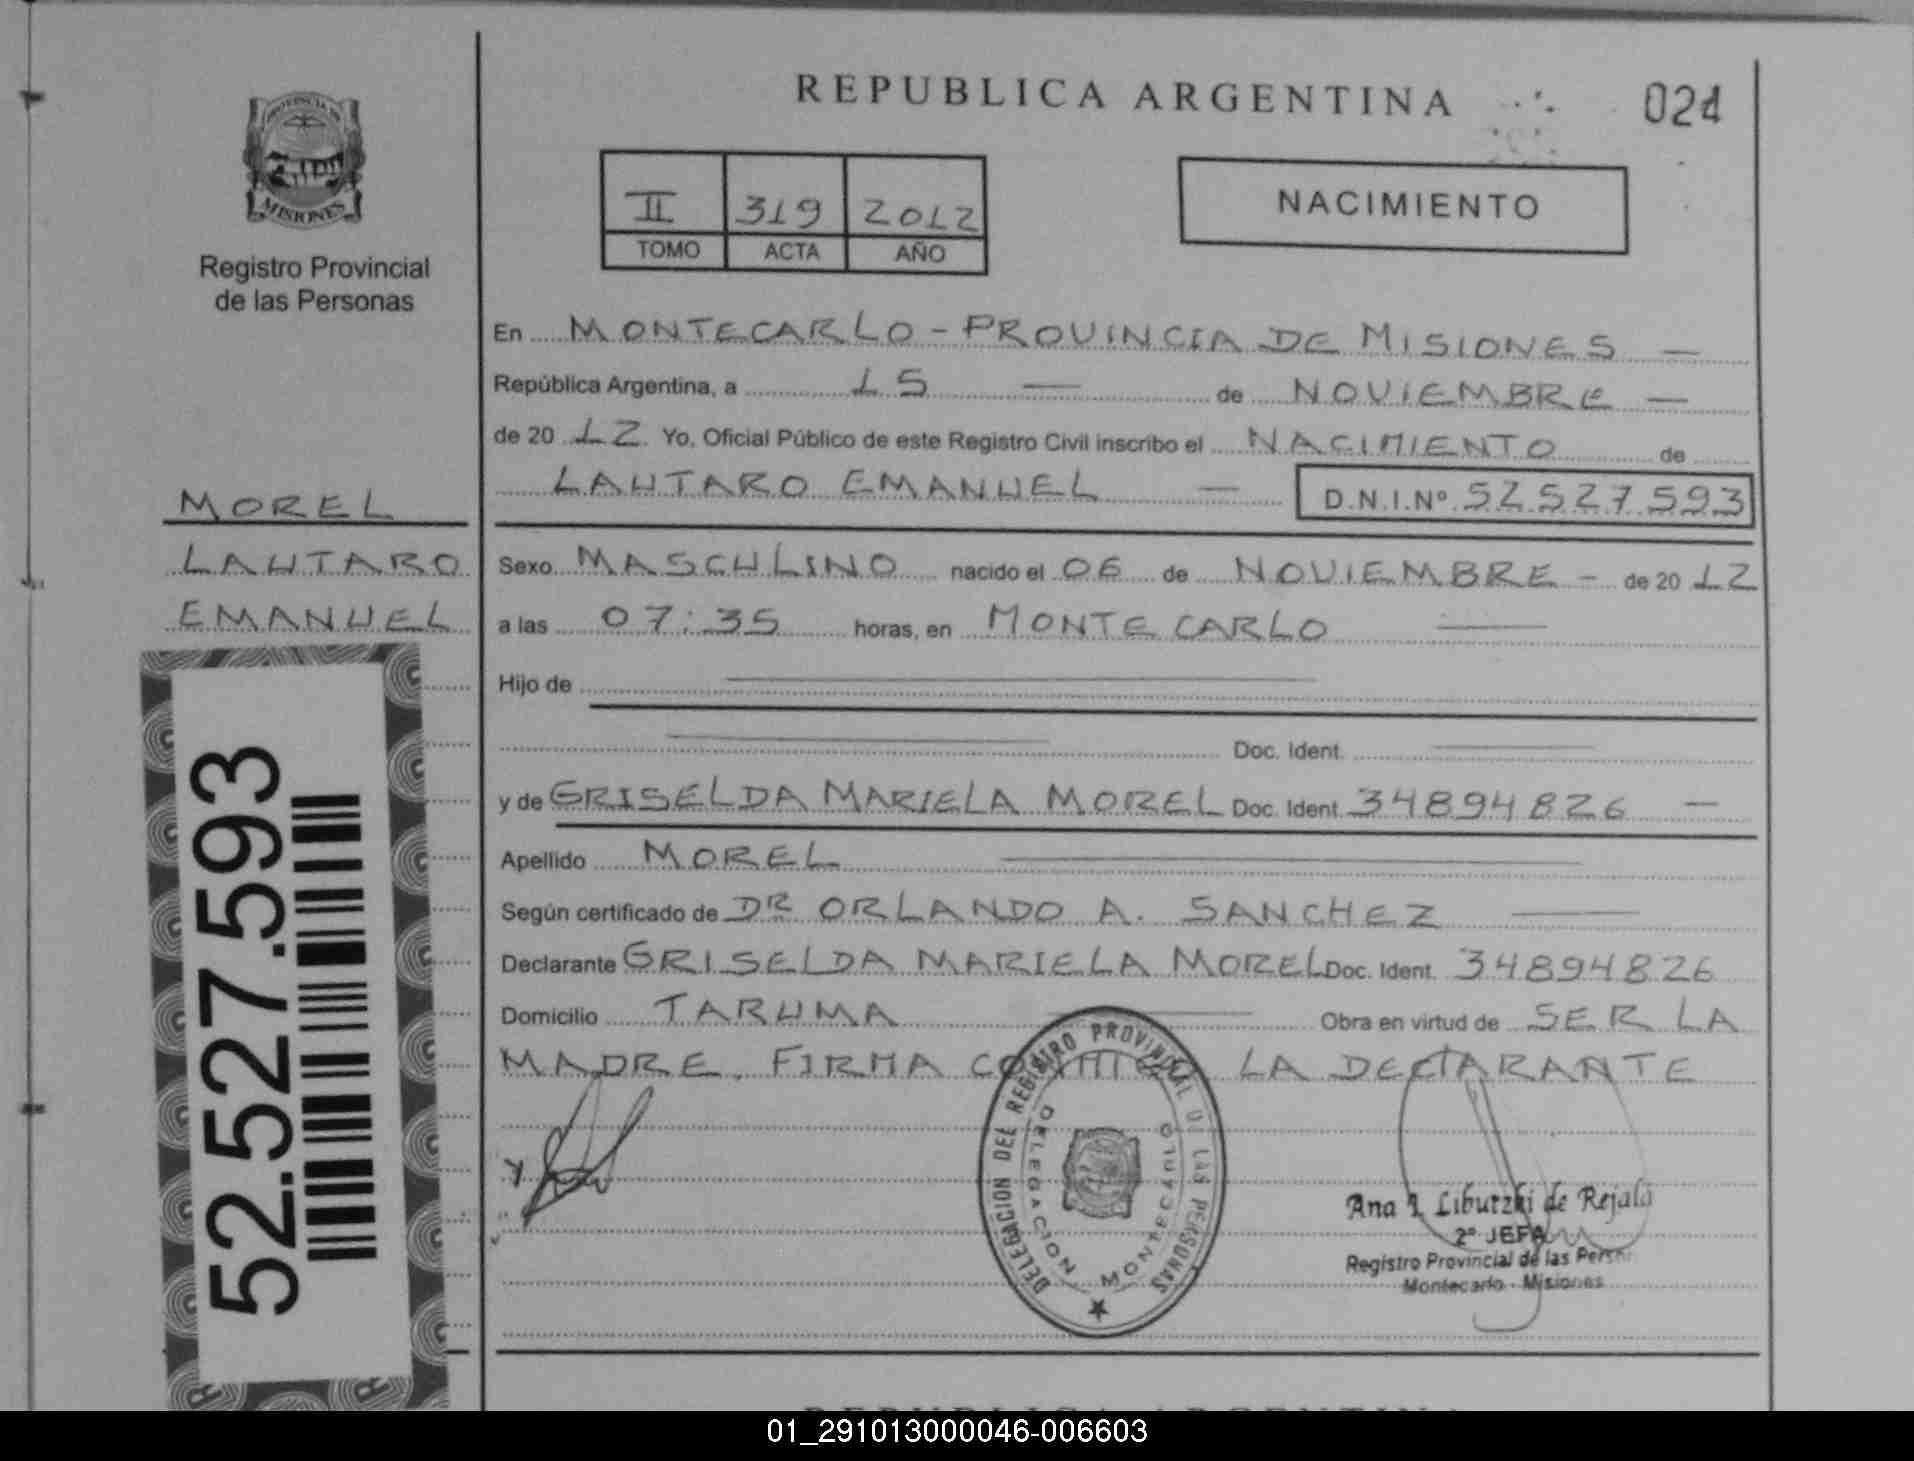 REPUBLICA ARGENTINA
024
PROVINCIA DE
MISIONES
Registro Provincial
de las Personas
II 319 2012
TOMO ACTA AÑO
NACIMIENTO
En MONTECARLO - PROVINCIA DE MISIONES —
República Argentina, a 15 — de NOVIEMBRE —
de 20 12 Yo, Oficial Público de este Registro Civil inscribo el NACIMIENTO de
LAUTARO EMANUEL — D.N.I.Nº 52527593
MOREL
LAUTARO
EMANUEL
Sexo MASCULINO nacido el 06 de NOVIEMBRE - de 20 12
a las 07:35 horas, en MONTECARLO —
Hijo de —
— Doc. Ident. —
y de GRISELDA MARIELA MOREL Doc. Ident. 34894826 —
Apellido MOREL —
Según certificado de DR ORLANDO A. SANCHEZ —
Declarante GRISELDA MARIELA MOREL Doc. Ident. 34894826
Domicilio TARUMA — Obra en virtud de SER LA
MADRE. FIRMA CONMIGO LA DECLARANTE
52.527.593
DELEGACION DEL REGISTRO PROVINCIAL DE LAS PERSONAS
DELEGACION MONTECARLO
Ana I. Liburzki de Rejala
2º JEFA
Registro Provincial de las Pers
Montecarlo - Misiones
REPUBLICA ARGENTINA
01_291013000046-006603